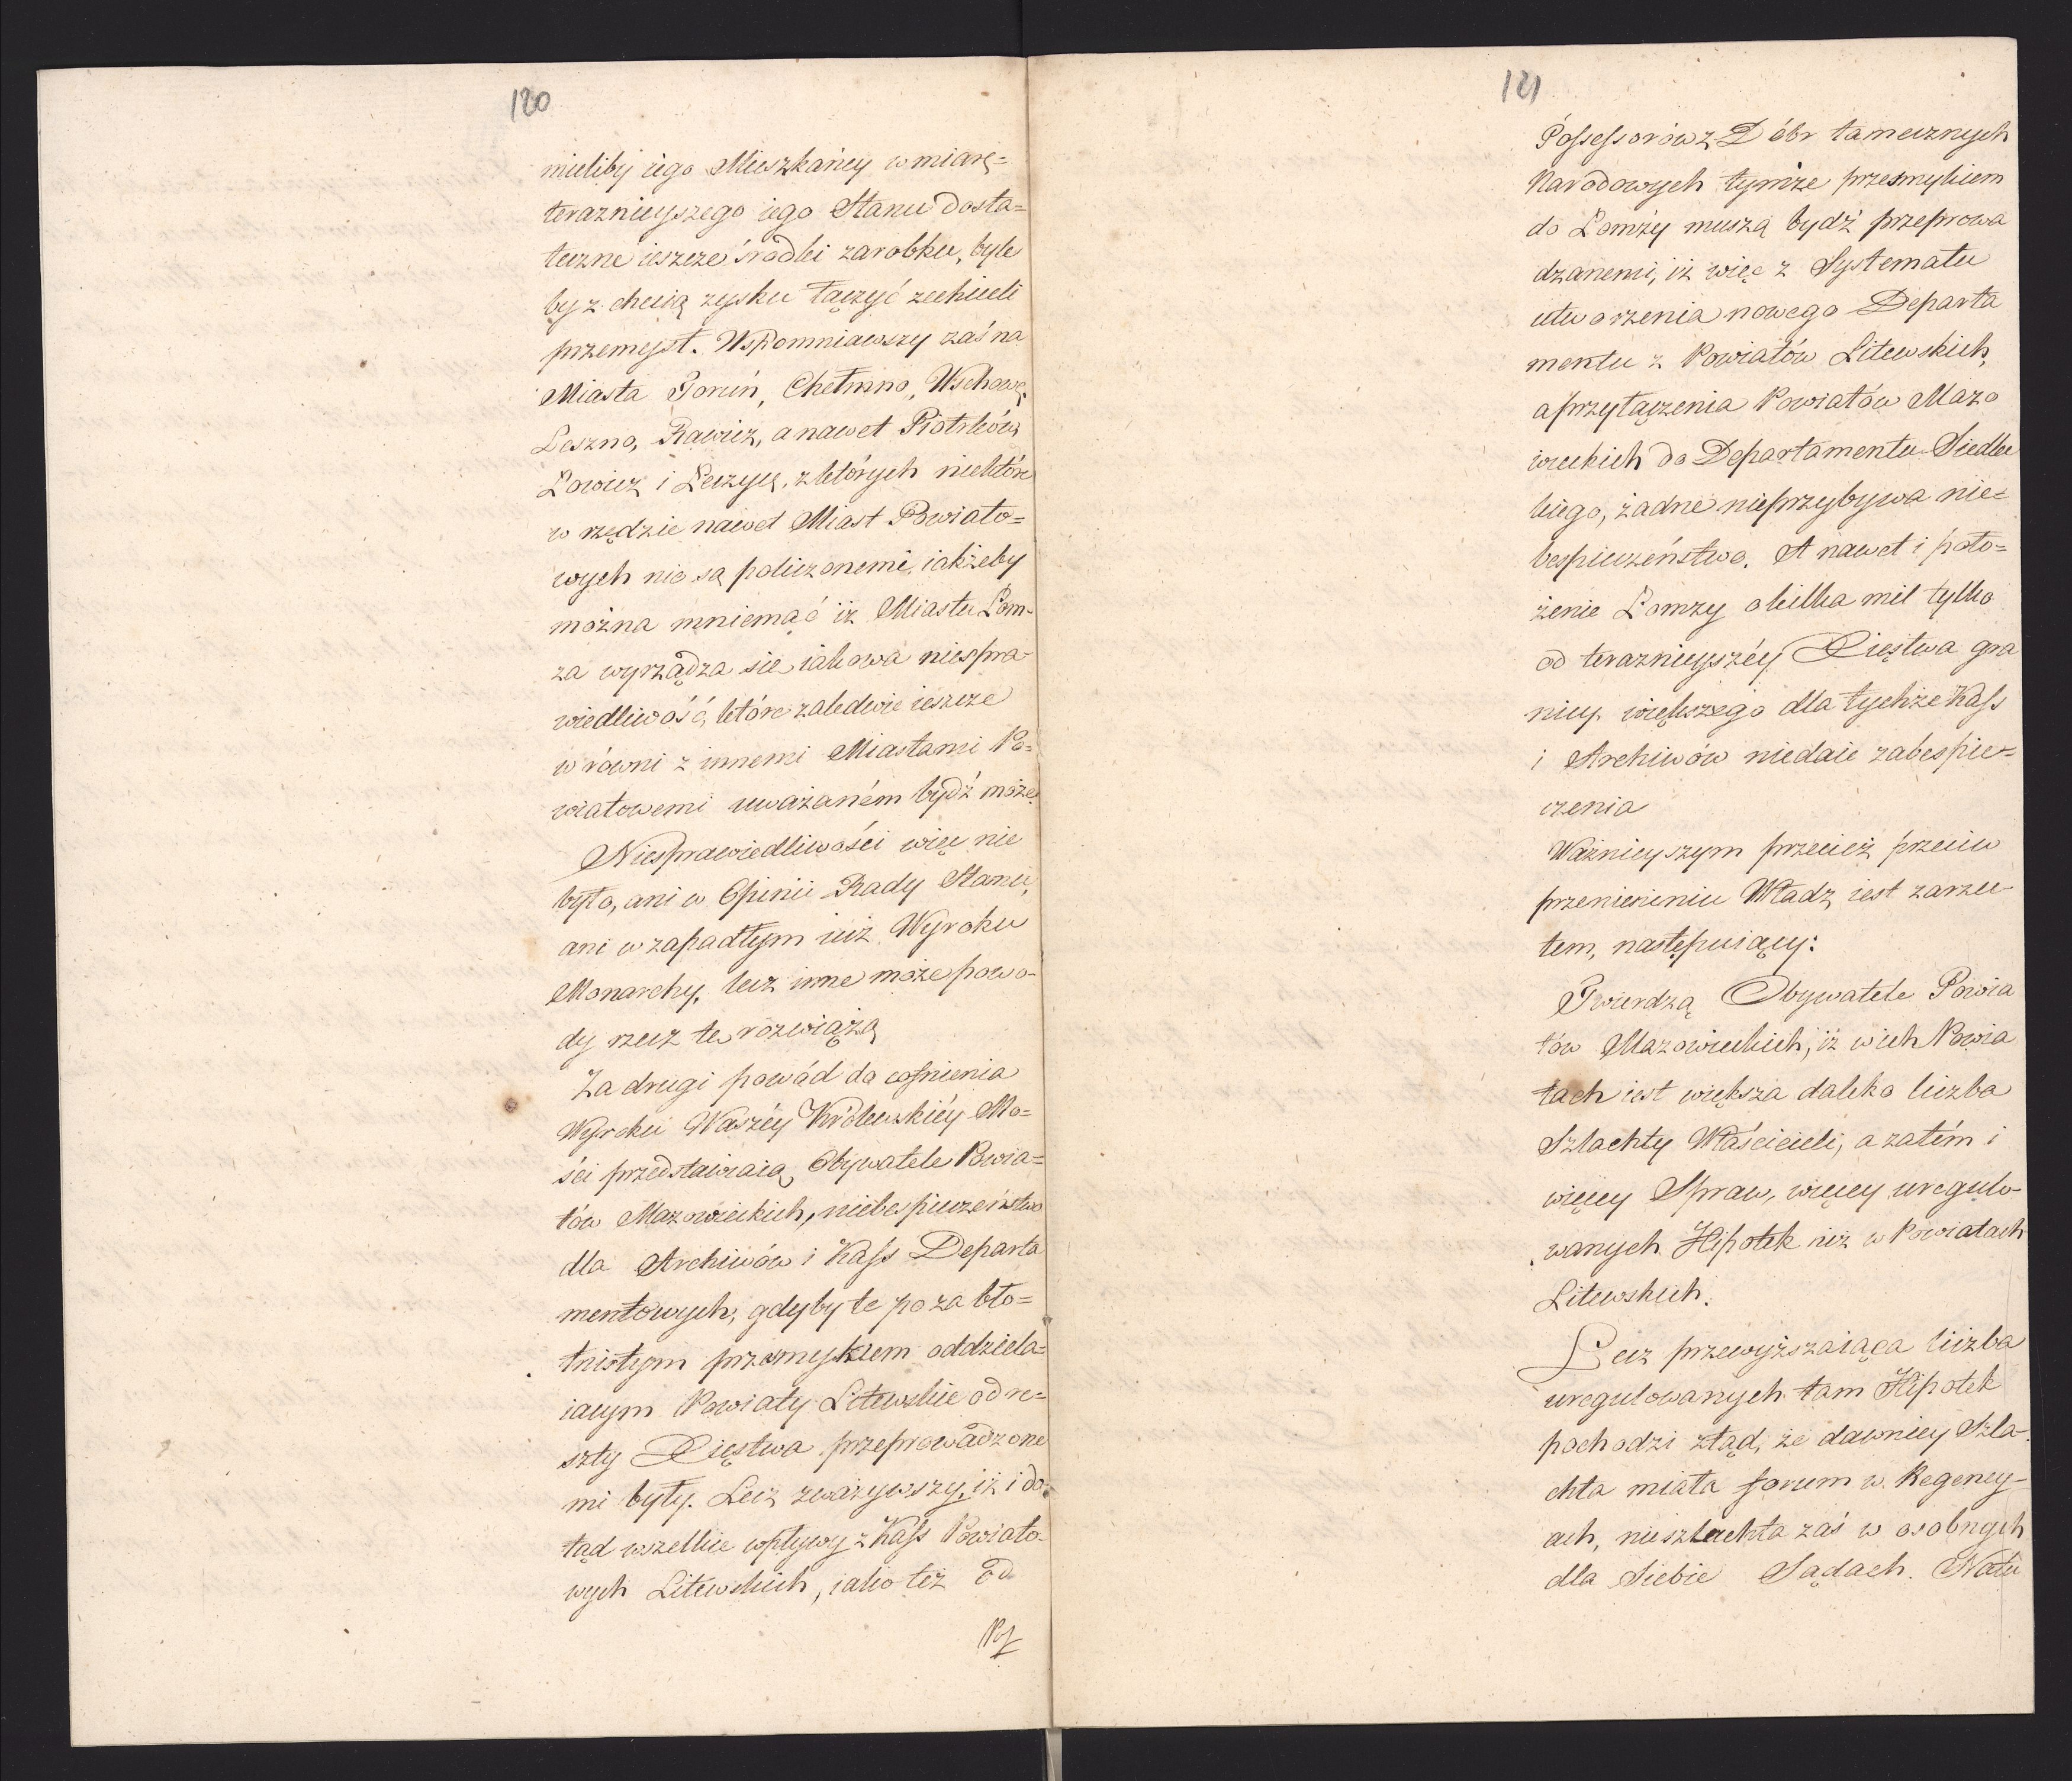 120
mieliby iego Mieszkańcy w miarę=
teraznieyszego iego Stanu dosta=
teczne ieszcze środki zarobku, byle
by z chęcią zysku łączyć zechcieli
przemysł. Wspomniawszy zaś na
Miasta Toruń, Chełmno, Wschowę,
Leszno, Rawicz, a nawet Piotrków,
Łowicz i Łęczycę, z których niektóre
w rzędzie nawet Miast Powiato=
wych nie są policzonemi, iakżeby
można mniemać iż Miastu Łom-
za wyrządza się iakowa niespra-
wiedliwość, które zaledwie ieszcze
w równi z innemi Miastami Po=
wiatowemi uważaném bydź może.
Niesprawiedliwości więc nie
było, ani w Opinii Rady Stanu,
ani w zapadłym iuż Wyroku
Monarchy, lecz inne może powo-
dy rzecz tę rozwiążą
Za drugi powód do cofnienia
Wyroku Waszéy Królewskiéy Mo=
ści przedstawiaią Obywatele Powia=
tów Mazowieckich, niebespieczeństwo
dla Archiwów i Kass Departa
mentowych, gdyby te poza bło=
tnistym przesmykiem oddziela=
iącym Powiaty Litewskie od re=
szty Xięstwa przeprowadzone
mi były. Lecz zważywszy, iż i do
tąd wszelkie wpływy z Kass Powiato-
wych Litewskich, iako też od
Pos
121
Possessorów z Dóbr tamecznych
Narodowych tymże przesmykiem
do Łomży muszą bydź przeprowa
dzanemi, iż więc z Systematu
utworzenia nowego Departa
mentu z Powiatów Litewskich,
a przyłączenia Powiatów Mazo
wieckich do Departamentu Siedlec
kiego, żadne nieprzybywa nie=
bespieczeństwo. A nawet i poło=
żenie Łomzy o kilka mil tylko
od teraznieyszéy Xięstwa gra
nicy większego dla tychże Kass
i Archiwów niedaie zabespie=
czenia
Ważnieyszym przecież przeciw
przeniesieniu Władz iest zarzu-
tem, następuiący:
Twierdzą Obywatele Powia
tów Mazowieckich, iż w ich Powia
tach iest większa daleko liczba
Szlachty Właścicieli, a zatém i
więcey Spraw, więcey uregulo-
wanych Hipotek niż w Powiatach
Litewskich.
Lecz przewyższaiąca liczba
uregulowanych tam Hipotek
pochodzi ztąd, że dawniey Szla-
chta miała forum w Regency-
ach, nieszlachta zaś w osobnych
dla Siebie Sądach. Natu